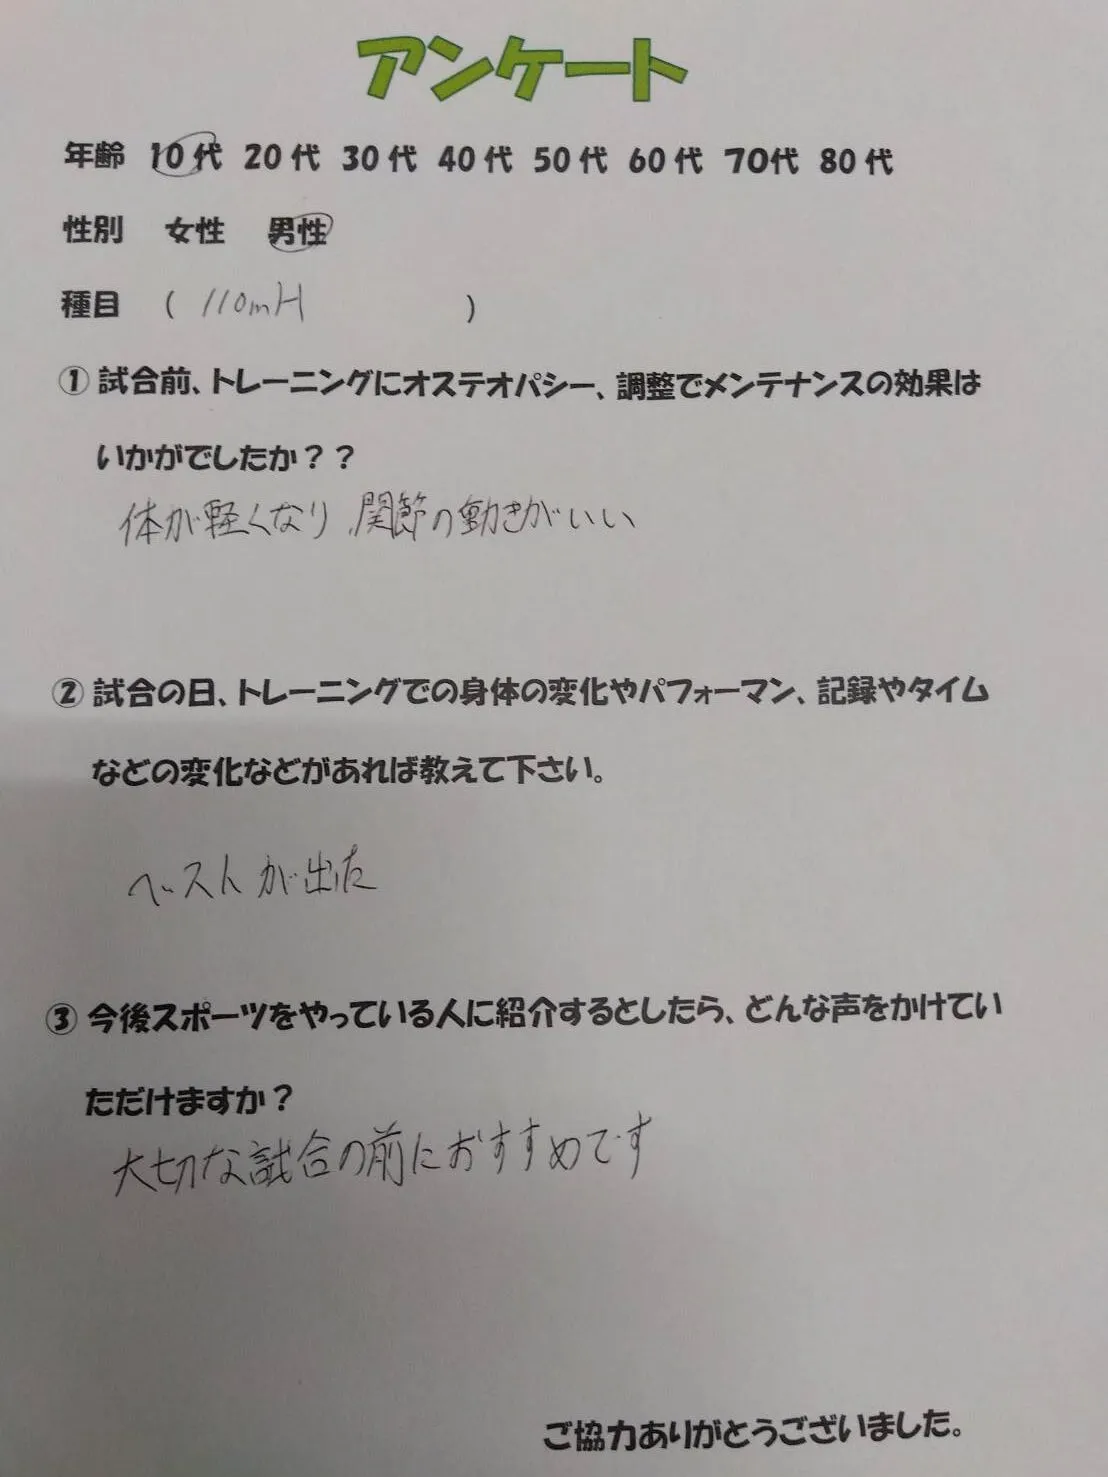 アンケート
年齢 10代 20代 30代 40代 50代 60代 70代 80代
性別 女性 男性
種目 ( 110mH )
① 試合前、トレーニングにオステオパシー、調整でメンテナンスの効果は
いかがでしたか？？
体が軽くなり、関節の動きがいい
② 試合の日、トレーニングでの身体の変化やパフォーマン、記録やタイム
などの変化などがあれば教えて下さい。
ベストが出た
③ 今後スポーツをやっている人に紹介するとしたら、どんな声をかけてい
ただけますか？
大切な試合の前におすすめです
ご協力ありがとうございました。